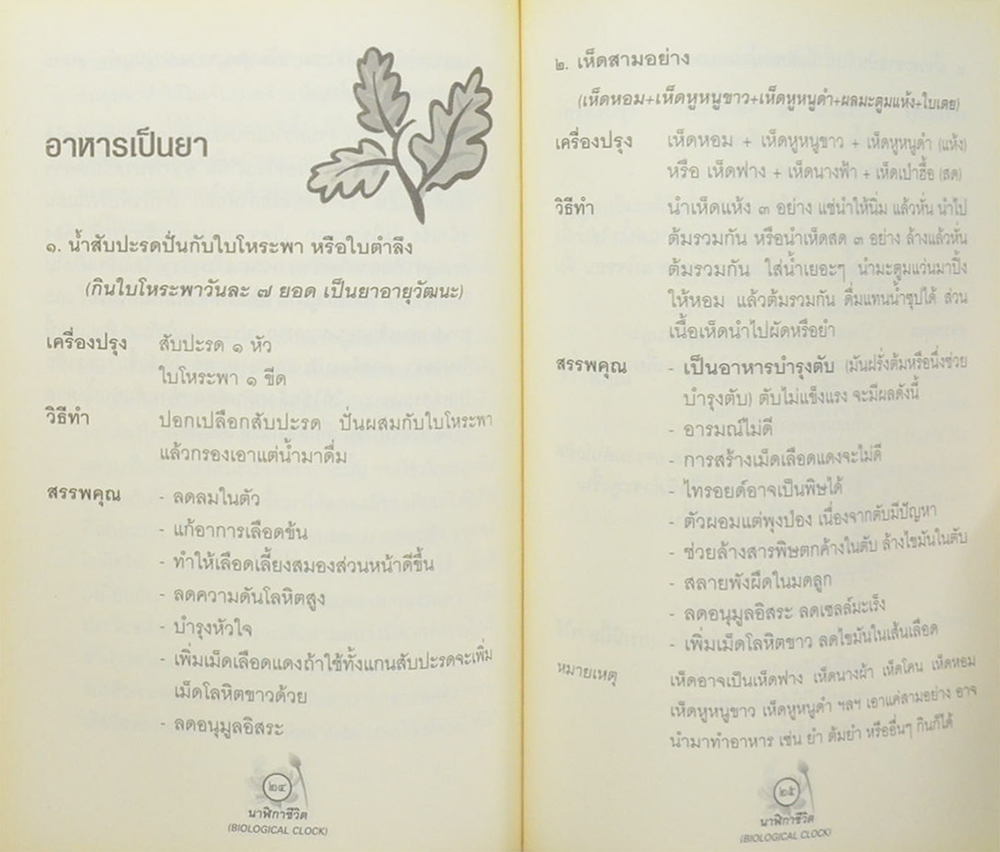 อาหารเป็นยา
๑. น้ำสับปะรดปั่นกับใบโหระพา หรือใบตำลึง
(กินใบโหระพาวันละ ๗ ยอด เป็นยาอายุวัฒนะ)
เครื่องปรุง สับปะรด ๑ หัว
ใบโหระพา ๑ ขีด
วิธีทำ ปอกเปลือกสับปะรด ปั่นผสมกับใบโหระพา
แล้วกรองเอาแต่น้ำมาดื่ม
สรรพคุณ - ลดลมในตัว
- แก้อาการเลือดข้น
- ทำให้เลือดเลี้ยงสมองส่วนหน้าดีขึ้น
- ลดความดันโลหิตสูง
- บำรุงหัวใจ
- เพิ่มเม็ดเลือดแดงถ้าใช้ทั้งแกนสับปะรดจะเพิ่ม
เม็ดโลหิตขาวด้วย
- ลดอนุมูลอิสระ
๒๔
นาฬิกาชีวิต
(BIOLOGICAL CLOCK)
๒. เห็ดสามอย่าง
(เห็ดหอม+เห็ดหูหนูขาว+เห็ดหูหนูดำ+ผลมะตูมแห้ง+ใบเตย)
เครื่องปรุง เห็ดหอม + เห็ดหูหนูขาว + เห็ดหูหนูดำ (แห้ง)
หรือ เห็ดฟาง + เห็ดนางฟ้า + เห็ดเป๋าฮื้อ (สด)
วิธีทำ นำเห็ดแห้ง ๓ อย่าง แช่น้ำให้นิ่ม แล้วหั่น นำไป
ต้มรวมกัน หรือนำเห็ดสด ๓ อย่าง ล้างแล้วหั่น
ต้มรวมกัน ใส่น้ำเยอะๆ นำมะตูมแว่นมาปิ้ง
ให้หอม แล้วต้มรวมกัน ดื่มแทนน้ำซุปได้ ส่วน
เนื้อเห็ดนำไปผัดหรือยำ
สรรพคุณ - เป็นอาหารบำรุงตับ (มันฝรั่งต้มหรือนึ่งช่วย
บำรุงตับ) ตับไม่แข็งแรง จะมีผลดังนี้
- อารมณ์ไม่ดี
- การสร้างเม็ดเลือดแดงจะไม่ดี
- ไทรอยด์อาจเป็นพิษได้
- ตัวผอมแต่พุงป่อง เนื่องจากตับมีปัญหา
- ช่วยล้างสารพิษตกค้างในตับ ล้างไขมันในตับ
- สลายพังผืดในมดลูก
- ลดอนุมูลอิสระ ลดเซลล์มะเร็ง
- เพิ่มเม็ดโลหิตขาว ลดไขมันในเส้นเลือด
หมายเหตุ เห็ดอาจเป็นเห็ดฟาง เห็ดนางฟ้า เห็ดโคน เห็ดหอม
เห็ดหูหนูขาว เห็ดหูหนูดำ ฯลฯ เอาแค่สามอย่าง อาจ
นำมาทำอาหาร เช่น ยำ ต้มยำ หรืออื่นๆ กินก็ได้
๒๕
นาฬิกาชีวิต
(BIOLOGICAL CLOCK)